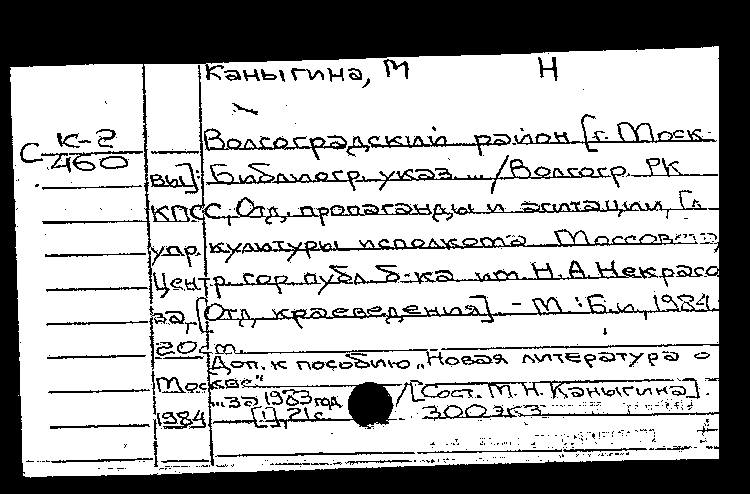 Каныгина, М Н
С К-2
460
Волгоградский район [г. Моск-
вы]: Библиогр. указ... / Волгогр. РК
КПСС, Отд. пропаганды и агитации, Гл.
упр. культуры исполкома Моссовета,
Центр. гор. публ. б-ка им. Н.А. Некрасо
ва, [Отд. краеведения]. - М.: Б.и., 1984.
20 см.
Доп. к пособию „Новая литература о
Москве"
„за 1983 год / [Сост. М.Н. Каныгина].
1984 [1], 21 с. 300 экз